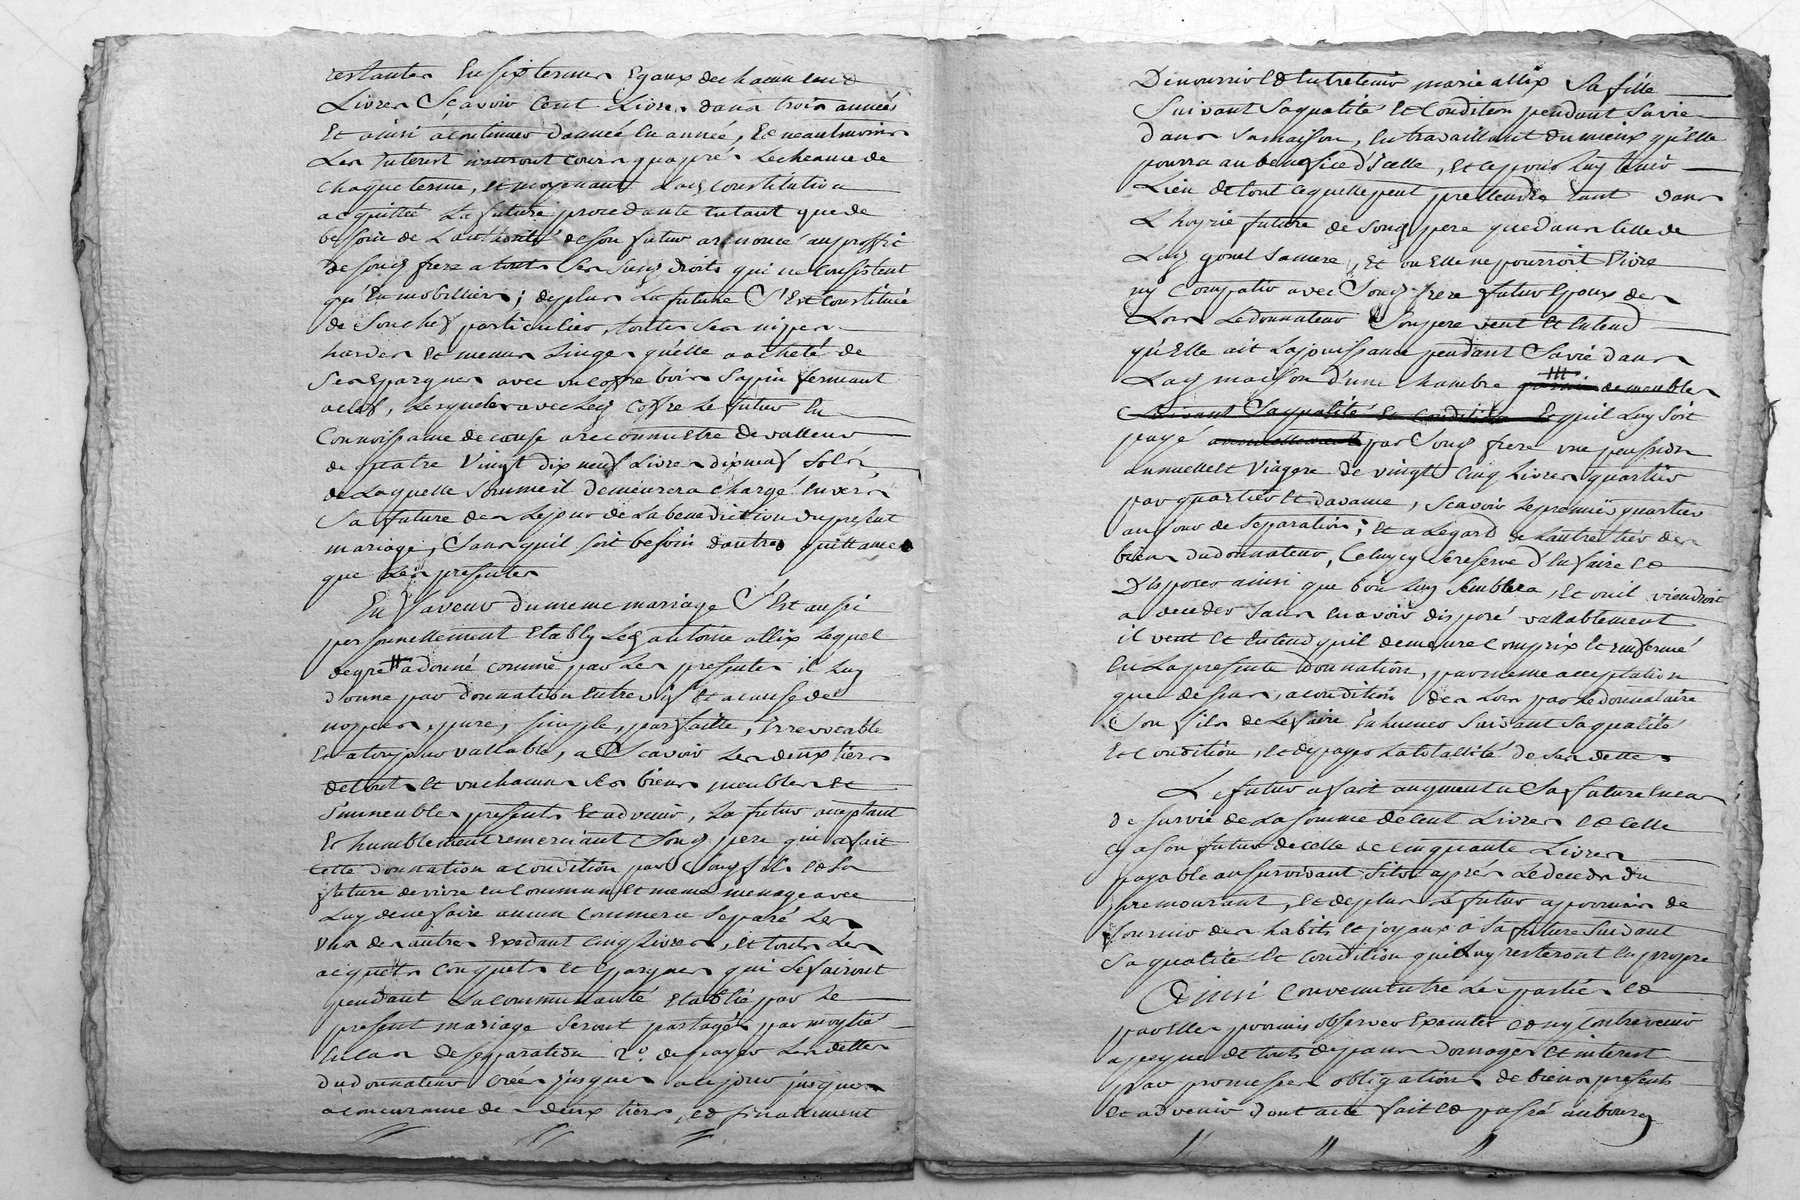 restantes En six termes Egaux de chacun Cent
Livres Scavoir Cent Livres dans trois années
Et ainsi à Continuer d'année En année, Et neantmoins
Les Interest n'auront cours qu'apré Lecheance de
chaque terme, et moyenant Lad Constitution
acquittée La future procedante Entant que de
bessoin de L'authorité de son futur a renoncé au proffit
de Soud frere a touts Ses Susd droits qui ne Consistent
qu'En mobilliers; deplus La future S'Est Constituée
de Son chef particulier, toutes Ses nippes
hardes Et menus Linges qu'elle a acheté de
Ses Epargnes avec un coffre bois Sappin fermant
a clef, Lesqueles avec Led Coffre Le futur En
Connoissance de cause a reconnu Etre de valleur
de quatre Vingt dix neuf Livres dixneuf Solds
de Laquelle Somme il demeurera chargé Envers
Sa future des Lejour de La benediction du present
mariage, Sans quil soit besoin dautres quittances
que Les presentes
En faveur du meme mariage S'Est aussi
personnellement Etably Led antoine allix Lequel
de gré a donné comme par Les presentes il Luy
donne par donnation Entre vifs Et a cause de
nopces, pure, simple, parfaitte, Irrevocable
Et a toujour vallable, a Scavoir Les deux tiers
de touts Et un chacuns Ses biens meubles Et
Immeubles presents Et advenir, Le futur acceptant
Et humblement remerciant Soud pere qui a fait
Cette donnation a condition par Soud fils Et Sa
future de vivre En Commun Et meme menage avec
Luy de ne faire aucun Commerce Separé Les
Uns des autres Exedant Cinq Livres, Et touts Les
acquets Conquets Et Epargnes qui Se fairont
pendant La communauté Etablie par Le
present mariage Seront partagés par moytié
En cas de Separation 2° de payer Les dettes
du donnateur Crées jusques a ce jour jusques
a concurrance des deux tiers, Et finallement
De nourrir Et Entretenir marie allix Sa fille
Suivant Sa qualité Et Condition pendant Sa vie
dans Sa maison, En travaillant du mieux qu'Elle
pourra au benefice d'Icelle, Et ce pour Luy tenir
Lieu de tout ce quelle peut prettendre tant dans
L'hoyrie future de Soud pere que dans Celle de
Lad gonet Sa mere, Et ou Elle ne pourroit Vivre
ny Compatir avec Soud frere futur Epoux des
Lors Le donnateur Son pere veut Et Entend
qu'Elle ait La jouissance pendant Sa vie dans
Lad maison d'une chambre garnie de meubles
Suivant Sa qualité Et Condition Et quil Luy Soit
payé annuellement par Soud frere une pension
annuelle et viagere de vingt Cinq Livres quartier
par quartier Et d'avance, Scavoir Le premier quartier
au jour de Separation; Et a Legard de L'autre tiers des
biens du donnateur, Celuy cy Se reserve d'En faire Et
Disposer ainsi que bon Luy Semblera, Et ou il viendroit
a deceder Sans En avoir disposé vallablement
il veut Et Entend quil demeure Compris Et renfermé
En La presente donnation, par meme acceptation
que dessus, a condition des Lors par Le donnataire
Son fils de Le faire Enhumer Suivant Sa qualité
Et Condition, Et de payer La totallité de Ses dettes
Le futur a fait augment a Sa future En cas
de Survie de La Somme de Cent Livres Et Celle
Cy a Son futur de Celle de Cinquante Livres
payable au Survivant Sitot après Le deceds du
premourant, Et de plus Le futur a promis de
fournir des habits Et joyaux à Sa future Suivant
Sa qualité Et Condition qui Luy resteront En propre
Ainsi Convenu Entre Les parties Et
par Elles promis observer Executer Et ny Contrevenir
a peyne de touts depans domages Et interest
par promesses obligations de biens presents
Et advenir dont acte fait Et passé au bourg